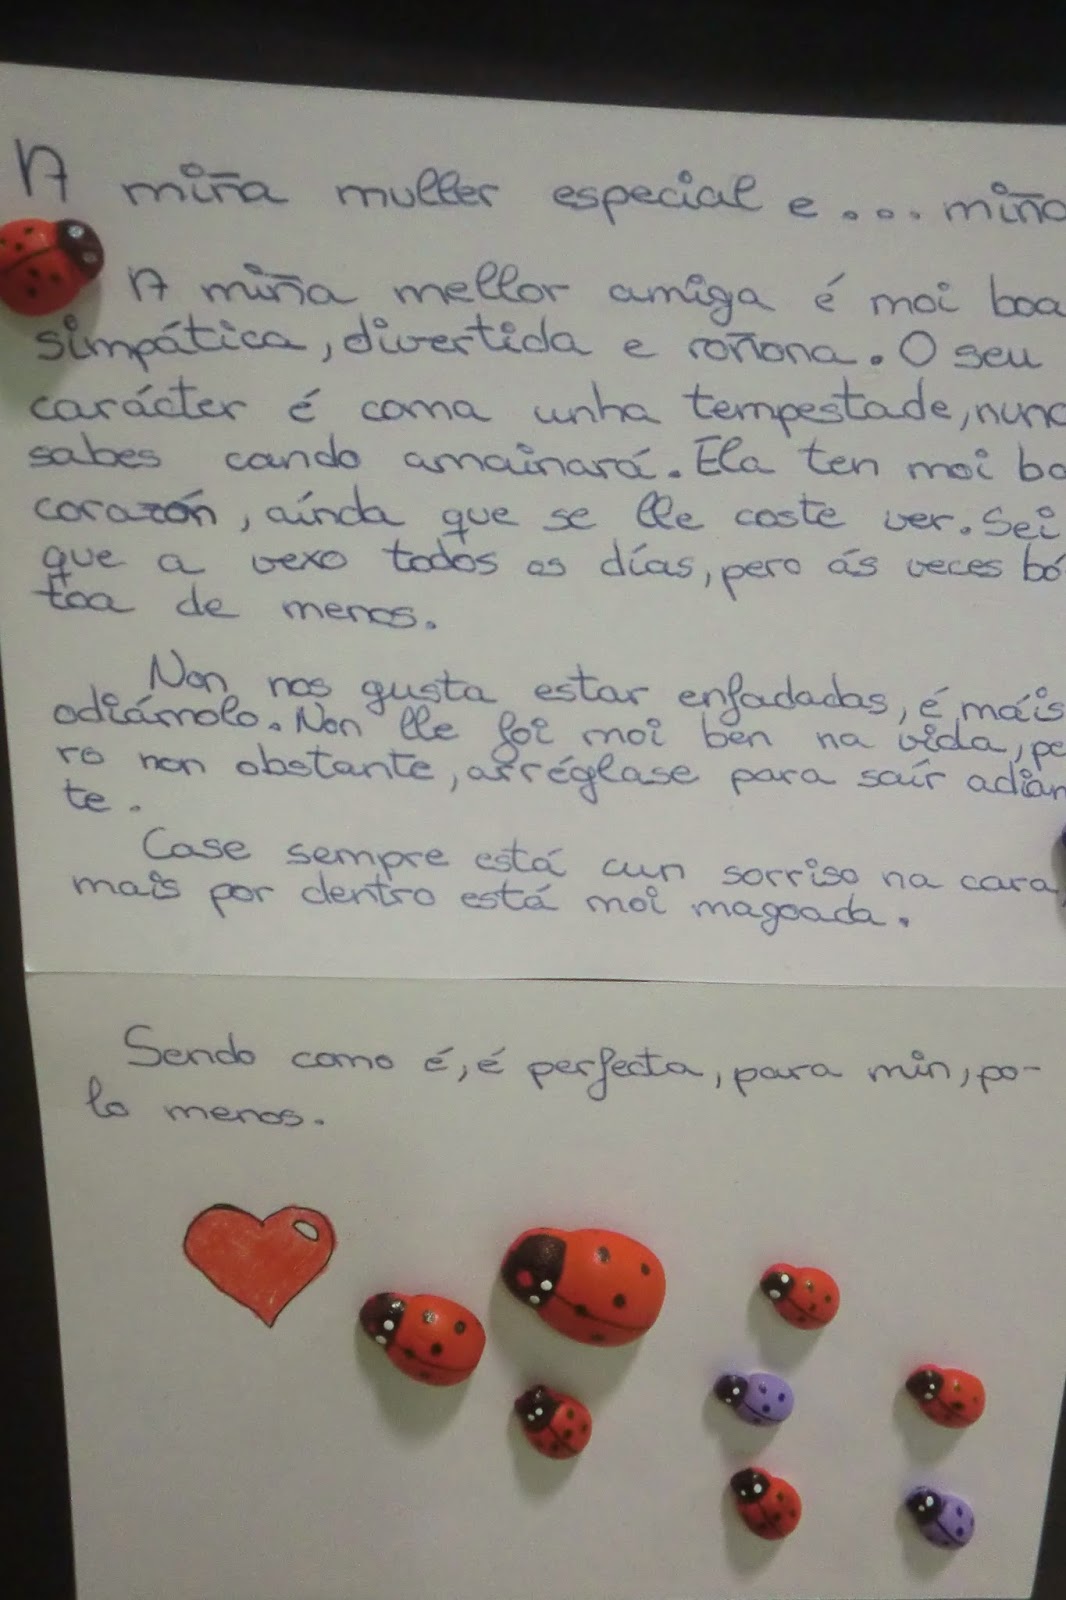 A miña muller especial e... miña
A miña mellor amiga é moi boa
simpática, divertida e roñona. O seu
carácter é coma unha tempestade, nunc
sabes cando amainará. Ela ten moi bo
corazón, aínda que se lle coste ver. Sei
que a vexo todos os días, pero ás veces bó
toa de menos.
Non nos gusta estar enfadadas, é máis
odiámolo. Non lle foi moi ben na vida, pe
ro non obstante, arréglase para saír adian
te.
Case sempre está cun sorriso na cara,
mais por dentro está moi magoada.
Sendo como é, é perfecta, para min, po-
lo menos.